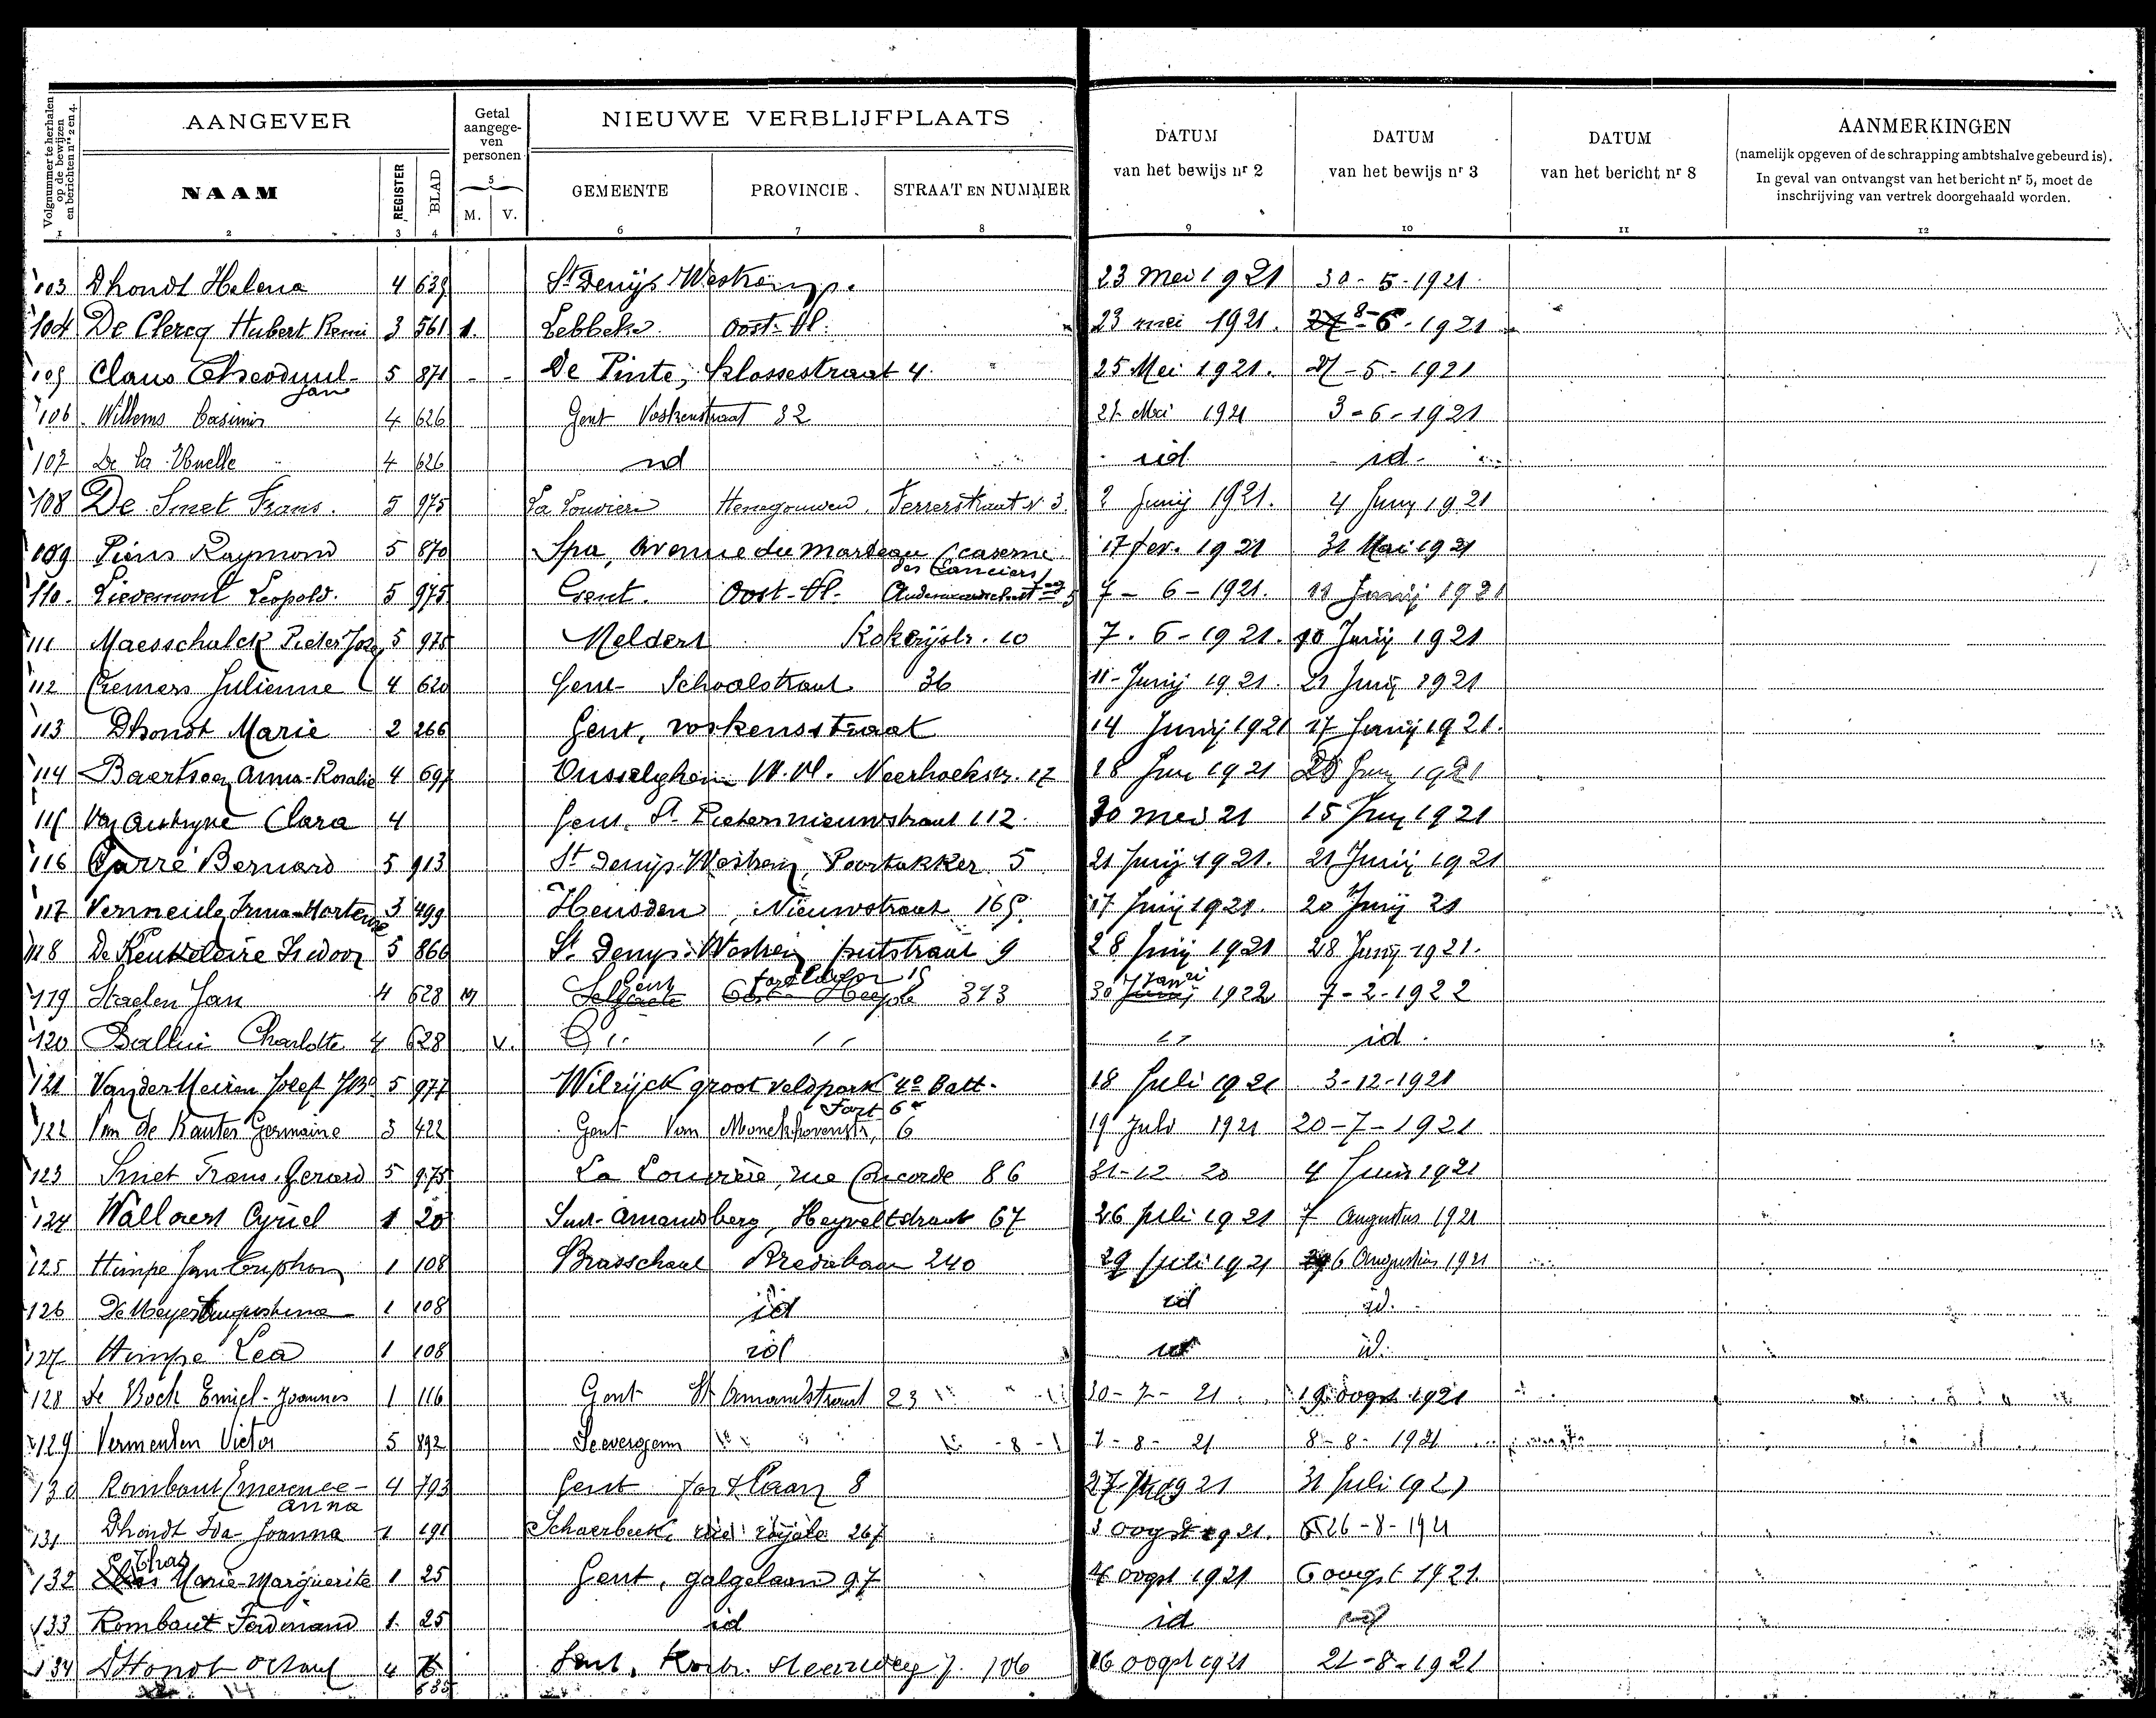 Volgnummer te herhalen op de bewijzen en berichten nrs 2 en 4.
AANGEVER
Getal aangegeven personen
NIEUWE VERBLIJFPLAATS
DATUM van het bewijs nr 2
DATUM van het bewijs nr 3
DATUM van het bericht nr 8
AANMERKINGEN
(namelijk opgeven of de schrapping ambtshalve gebeurd is).
In geval van ontvangst van het bericht nr 5, moet de
inschrijving van vertrek doorgehaald worden.
NAAM REGISTER BLAD 5 M. V. GEMEENTE PROVINCIE STRAAT EN NUMMER
1 2 3 4 6 7 8 9 10 11 12
103 Dhondt Helena 4 639 St Denijs Westremp. 23 Mei 1921 30-5-1921
104 De Clercq Hubert Remi 3 561 1. Lebbeke Oost-Vl. 23 mei 1921. 8-6-1921
105 Claus Theoduul-Jan 5 871 - - De Pinte, Klossestraat 4. 25 Mei 1921. 27-5-1921
106 Willems Casimir 4 626 Gent Voskenstraat 32 Mei 1921 3-6-1921
107 De la 4 626 id id id
108 De Smet Frans. 5 975 La Louviere Henegouwen. Ferrerstraat N 3. 2 Junij 1921. 4 Juny 1921
109 Piens Raymond 5 870 Spa, avenue du marteau (caserne des Lanciers) 17 fev. 1921 31 Mai 1921
110. Lievemont Leopold. 5 975 Gent. Oost-Vl. 7-6-1921. 11 Junij 1921
111 Maesschalck Pieter Jozef 5 975 Meldert Kokerijstr. 10 7.6-1921. 10 Junij 1921
112 Cremers Julienne 4 620 Gent- Schoolstraat 36 11-Junij 1921. 21 Junij 1921
113 Dhondt Marie 2 266 Gent, voskensstraat 14 Junij 1921 17 Junij 1921.
114 Baertsoen Anna-Rosalie 4 697 Ousselghem W.Vl. Neerhoekstr. 17 18 Jun 1921 Juny 1921
115 Clara 4 Gent, St Pietersnieuwstraat 112. 30 mei 21 15 Juny 1921
116 Carré Bernard 5 913 St Denijs-Westrem, Poortakker 5 21 Junij 1921. 21 Junij 1921
117 Vermeule Irma-Hortense 3 499 Heusden, Nieuwstraat 165. 17 Junij 1921. 20 Junij 21
118 De Keukeleire Isidoor 5 866 St Denijs-Westrem putstraat 9 28 Junij 1921 28 Junij 1921.
119 Staelen Jan 4 628 M Gent 15 373 30 Janri 1922 7-2-1922
120 Ballin Charlotte 4 628 V. '' '' '' id.
121 Van der Meiren Jozef 5 977 Wilrijck groot veldpark 4e Batt. Fort 6 18 Juli 1921 3-12-1921
122 Van de Kauter Germaine 3 422 Gent Van Monckhovenstr, 6 19 Juli 1921 20-7-1921
123 Smet Frans. Gerard 5 975 La Louvière, rue Concorde 86 31-12 20 4 Juin 1921
124 Wallaert Cyriel 1 20 Sint-Amandsberg, Heyveltstraat 67 26 Juli 1921 7 Augustus 1921
125 Himpe Jan 1 108 Brasschaet Bredabaan 240 29 Juli 1921 6 Augustus 1921
126 De Meyer Augustina 1 108 id id id.
127 Himpe Lea 1 108 id id id.
128 De Bock Emiel-Joannes 1 116 Gent St Amandstraat 23 30-7-21 19 oogst 1921
129 Vermeulen Victor 5 892 Seevergem 7-8-21 8-8-1921
130 Rombaut Emerence-anna 4 793 Gent 8 27 1921 31 Juli 1921
131 Dhondt Ida-Joanna 1 191 Schaerbeek, rue royale 267 3 oogst 1921. 26-8-1921
132 Marie-Marguerite 1 25 Gent, galgelaan 97 4 oogst 1921 6 oogst 1921.
133 Rombaut Ferdinand 1. 25 id id id
134 D'Hondt 4 635 Gent, Kortr. steenweg 106 16 oogst 1921 21-8-1921
14